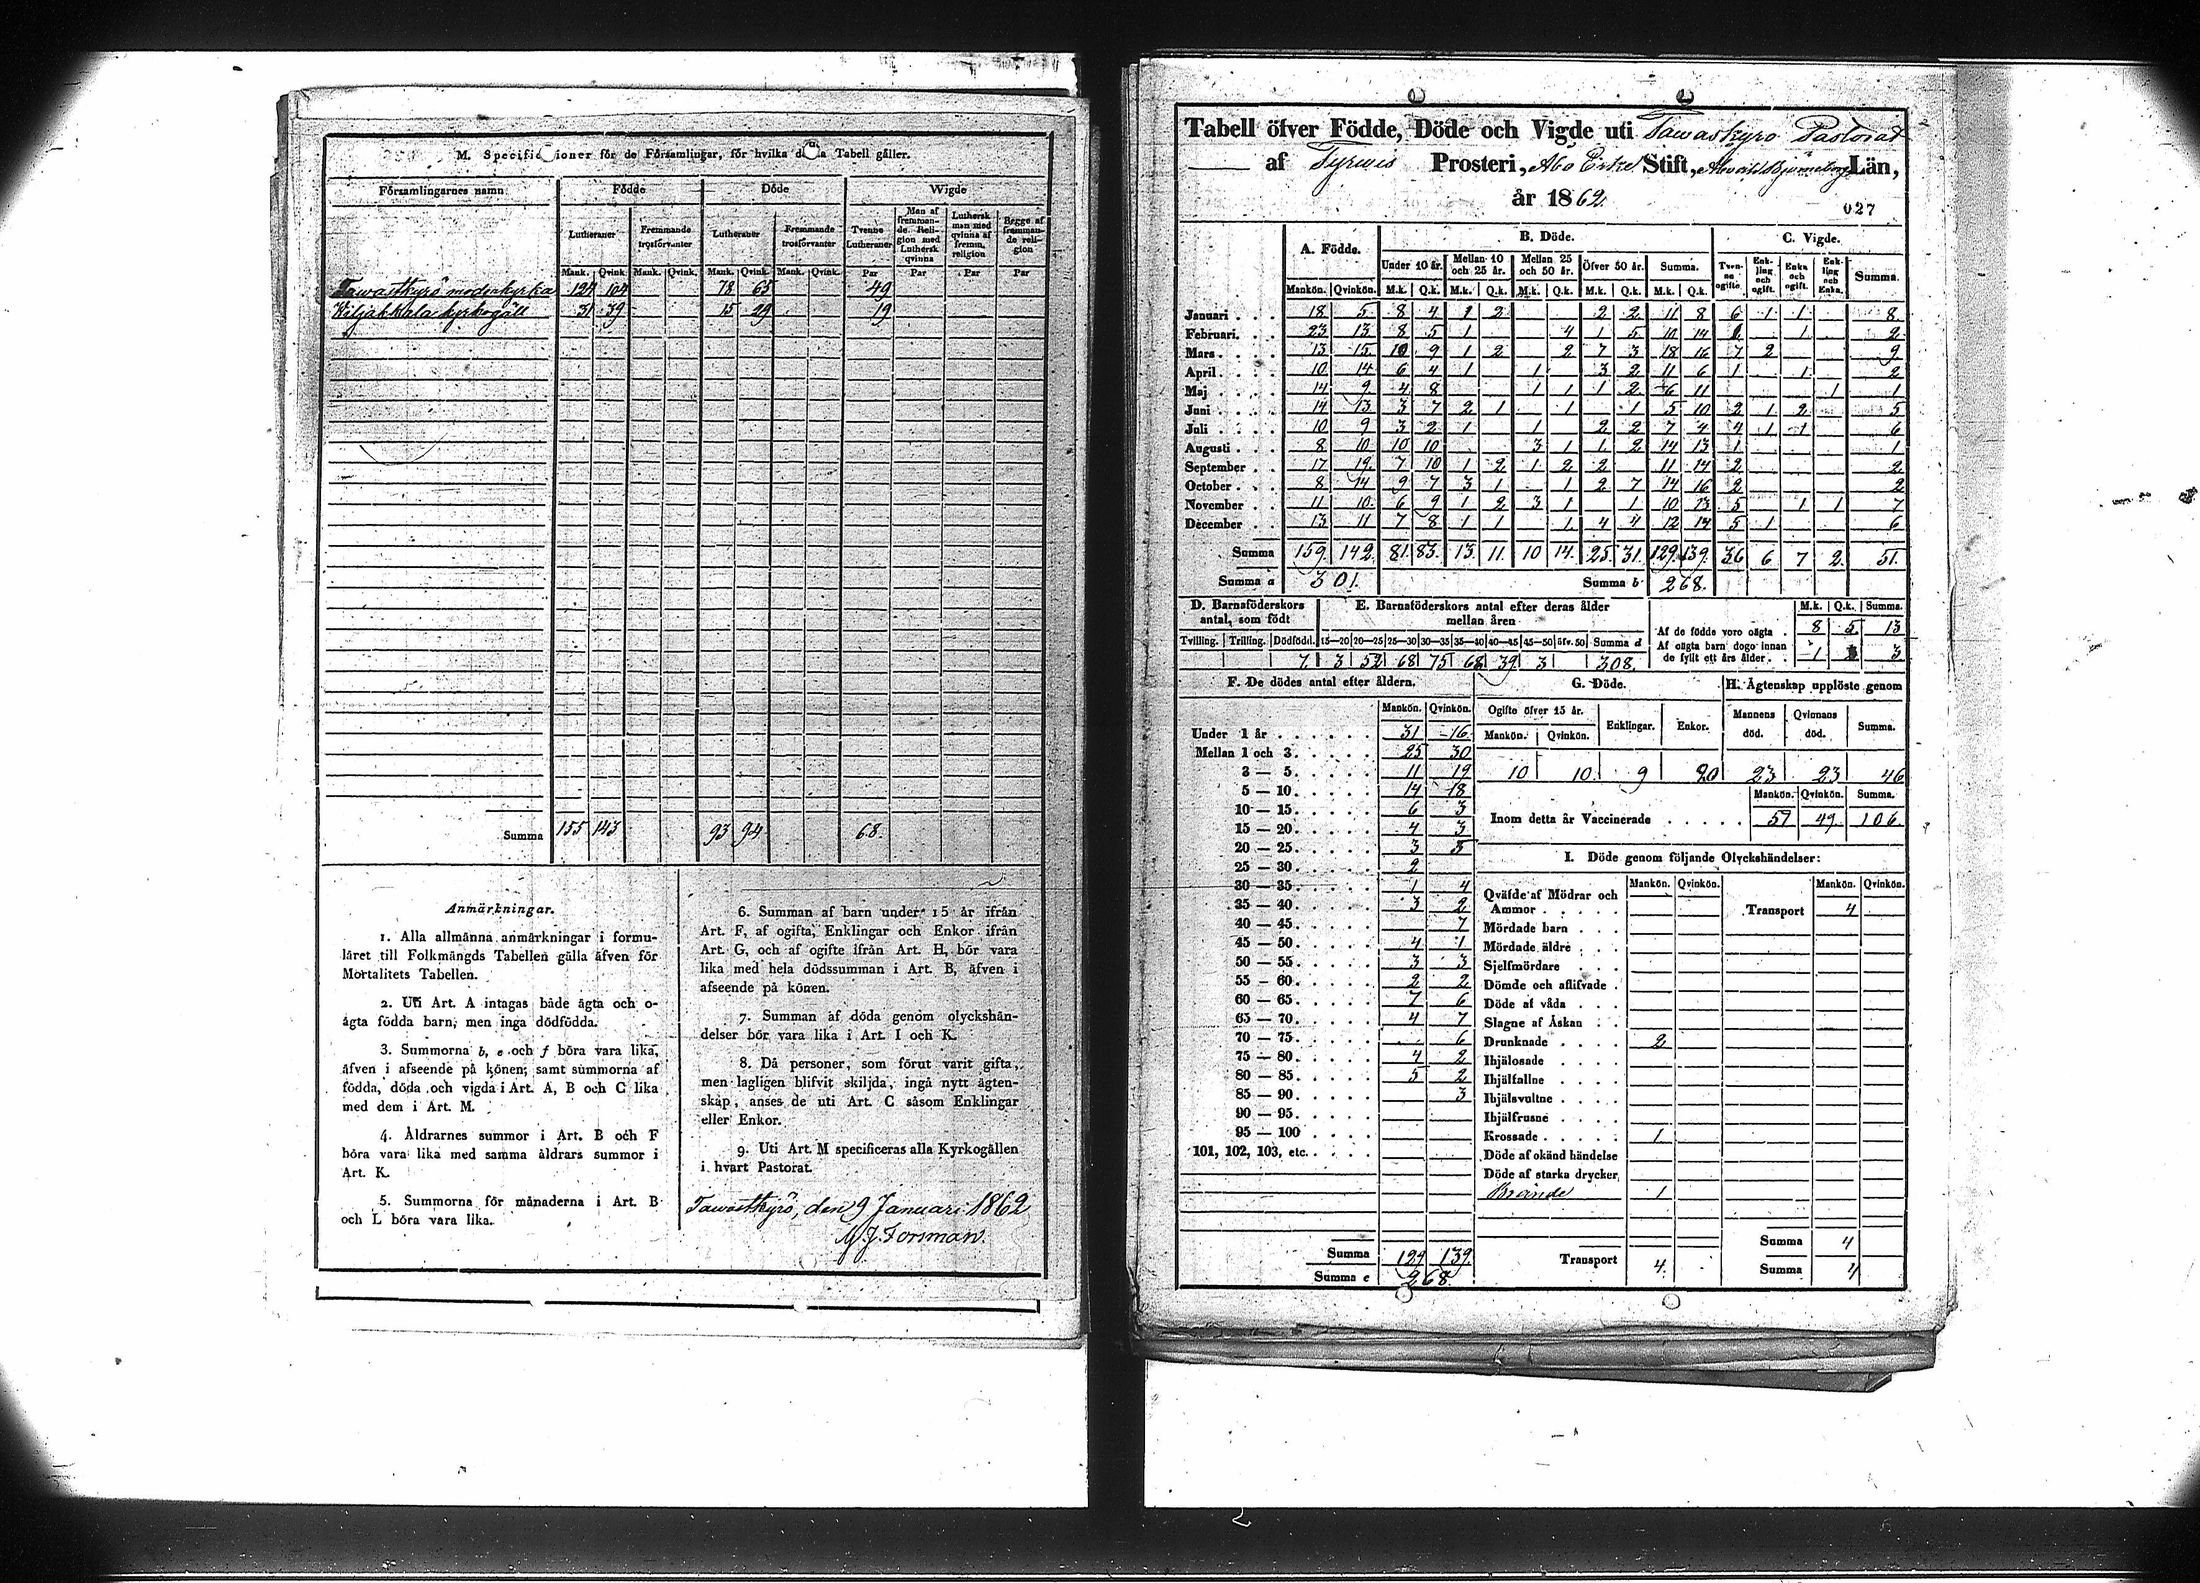 M. Specificationer för de Församlingar, för hvilka denna Tabell gäller.
Församlingarnes namn. Födde Döde Wigde
Lutheraner Fremmande trosförvanter Lutheraner Fremmande trosförvanter Tvenne Lutheraner Man af fremmande Religion med Luthersk qvinna Luthersk man med qvinna af fremm. religion Begge af fremmande religion
Mank. Qvink. Mank. Qvink. Mank. Qvink. Mank. Qvink. Par Par Par Par
Tawastkyrö moderkyrka 124 104 78 65 49
Wiljakkala kyrkogäll 31 39 15 29 19
Summa 155 143 93 94 68.
Anmärkningar.
1. Alla allmänna anmärkningar i formu-
läret till Folkmängds Tabellen gälla äfven för
Mortalitets Tabellen.
2. Uti Art. A intagas både ägta och o-
ägta födda barn, men inga dödfödda.
3. Summorna b, e och f böra vara lika,
äfven i afseende på könen; samt summorna af
födda, döda och vigda i Art. A, B och C lika
med dem i Art. M.
4. Åldrarnes summor i Art. B och F
böra vara lika med samma åldrars summor i
Art. K.
5. Summorna för månaderna i Art. B
och L böra vara lika.
6. Summan af barn under 15 år ifrån
Art. F, af ogifta, Enklingar och Enkor ifrån
Art. G, och af ogifte ifrån Art. H, bör vara
lika med hela dödssumman i Art. B, äfven i
afseende på könen.
7. Summan af döda genom olyckshän-
delser bör vara lika i Art. I och K.
8. Då personer, som förut varit gifta,
men lagligen blifvit skiljda, ingå nytt ägten-
skap, anses de uti Art. C såsom Enklingar
eller Enkor.
9. Uti Art. M specificeras alla Kyrkogällen
i hvart Pastorat.
Tawastkyrö, den 9 Januari 1862
M. J. Forsman.
Tabell öfver Födde, Döde och Vigde uti Tawastkyro Pastorat
af Tyrwis Prosteri, Åbo Erke Stift, Län,
år 1862.
027
A. Födde. B. Döde. C. Vigde.
Under 10 år. Mellan 10 och 25 år. Mellan 25 och 50 år. Öfver 50 år. Summa. Tvenne ogifte. Enkling och ogift. Enka och ogift. Enkling och Enka. Summa.
Mankön. Qvinkön. M.k. Q.k. M.k. Q.k. M.k. Q.k. M.k. Q.k. M.k. Q.k.
Januari 18 5 8 4 2 2 2 11 8 6 1 1 8
Februari 23 13 8 5 1 4 1 5 10 14 1 2
Mars 13 15 10 9 1 2 2 7 3 18 16 7 2 9
April 10 14 6 4 1 1 3 2 11 6 1 1 2
Maj 14 9 4 8 1 1 1 2 6 11 1 1
Juni 14 13 3 7 2 1 1 1 5 10 2 1 2 5
Juli 10 9 3 2 1 1 2 2 7 4 4 1 1 6
Augusti 8 10 10 10 3 1 1 2 14 13 1 1
September 17 19 7 10 1 2 1 2 2 11 14 2 2
October 8 14 9 7 3 1 1 2 7 14 16 2 2
November 11 10 6 9 1 2 3 1 1 10 13 5 1 1 7
December 13 11 7 8 1 1 1 4 4 12 14 5 1 6
Summa 159 142 81 83 13 11 10 14 25 31 129 139 36 6 7 2 51.
Summa a 301. Summa b 268.
D. Barnaföderskors antal, som födt
Tvilling. Trilling. Dödfödd.
7.
E. Barnaföderskors antal efter deras ålder mellan åren
15—20 20—25 25—30 30—35 35—40 40—45 45—50 öfv. 50 Summa d
3 52 68 75 68 39 3 308.
M.k. Q.k. Summa.
Af de födde voro oägta 8 5 13
Af oägta barn dogo innan de fyllt ett års ålder 1 3
F. De dödes antal efter åldern.
Mankön. Qvinkön.
Under 1 år 31 16
Mellan 1 och 3 25 30
3 — 5 11 19
5 — 10 14 18
10 — 15 6 3
15 — 20 4 3
20 — 25 3 5
25 — 30 2
30 — 35 1 4
35 — 40 3 2
40 — 45 7
45 — 50 4 1
50 — 55 3 3
55 — 60 2 2
60 — 65 7 6
65 — 70 4 7
70 — 75 6
75 — 80 4 2
80 — 85 5 2
85 — 90 3
90 — 95
95 — 100
101, 102, 103, etc.
Summa 129 139
Summa e 268.
G. Döde.
Ogifte öfver 15 år. Enklingar. Enkor.
Mankön. Qvinkön.
10 10 9 20
H. Ägtenskap upplöste genom
Mannens död. Qvinnans död. Summa.
23 23 46
Mankön. Qvinkön. Summa.
Inom detta år Vaccinerade 57 49 106
I. Döde genom följande Olyckshändelser:
Mankön. Qvinkön. Mankön. Qvinkön.
Qväfde af Mödrar och Ammor
Transport 4
Mördade barn
Mördade äldre
Sjelfmördare
Dömde och aflifvade
Döde af våda
Slagne af Åskan
Drunknade 2
Ihjälosade
Ihjälfallne
Ihjälsvultne
Ihjälfrusne
Krossade 1
Döde af okänd händelse
Döde af starka drycker
Brände 1
Summa 4
Transport 4. Summa 4